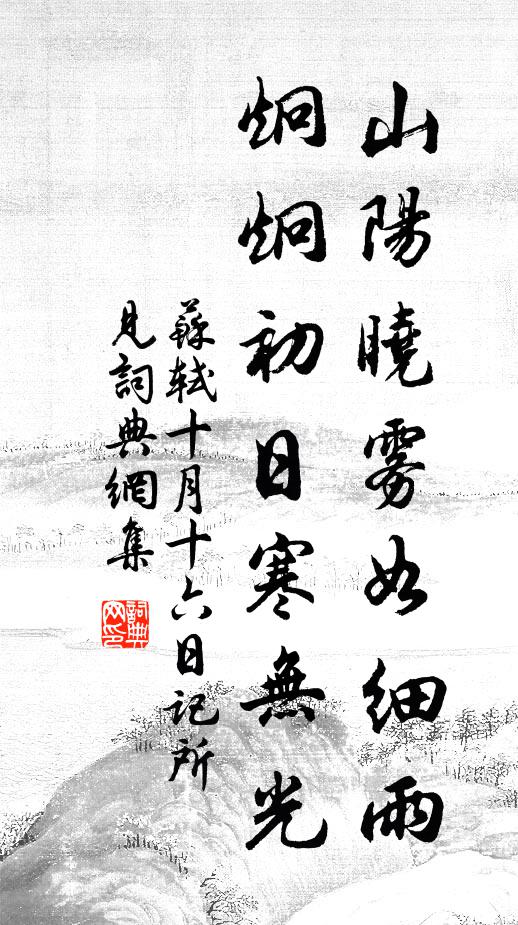 山陽曉雾如细雨
炯炯初日寒無光
蘇軾十月十六日记所
見詞典網集
詞典
网印